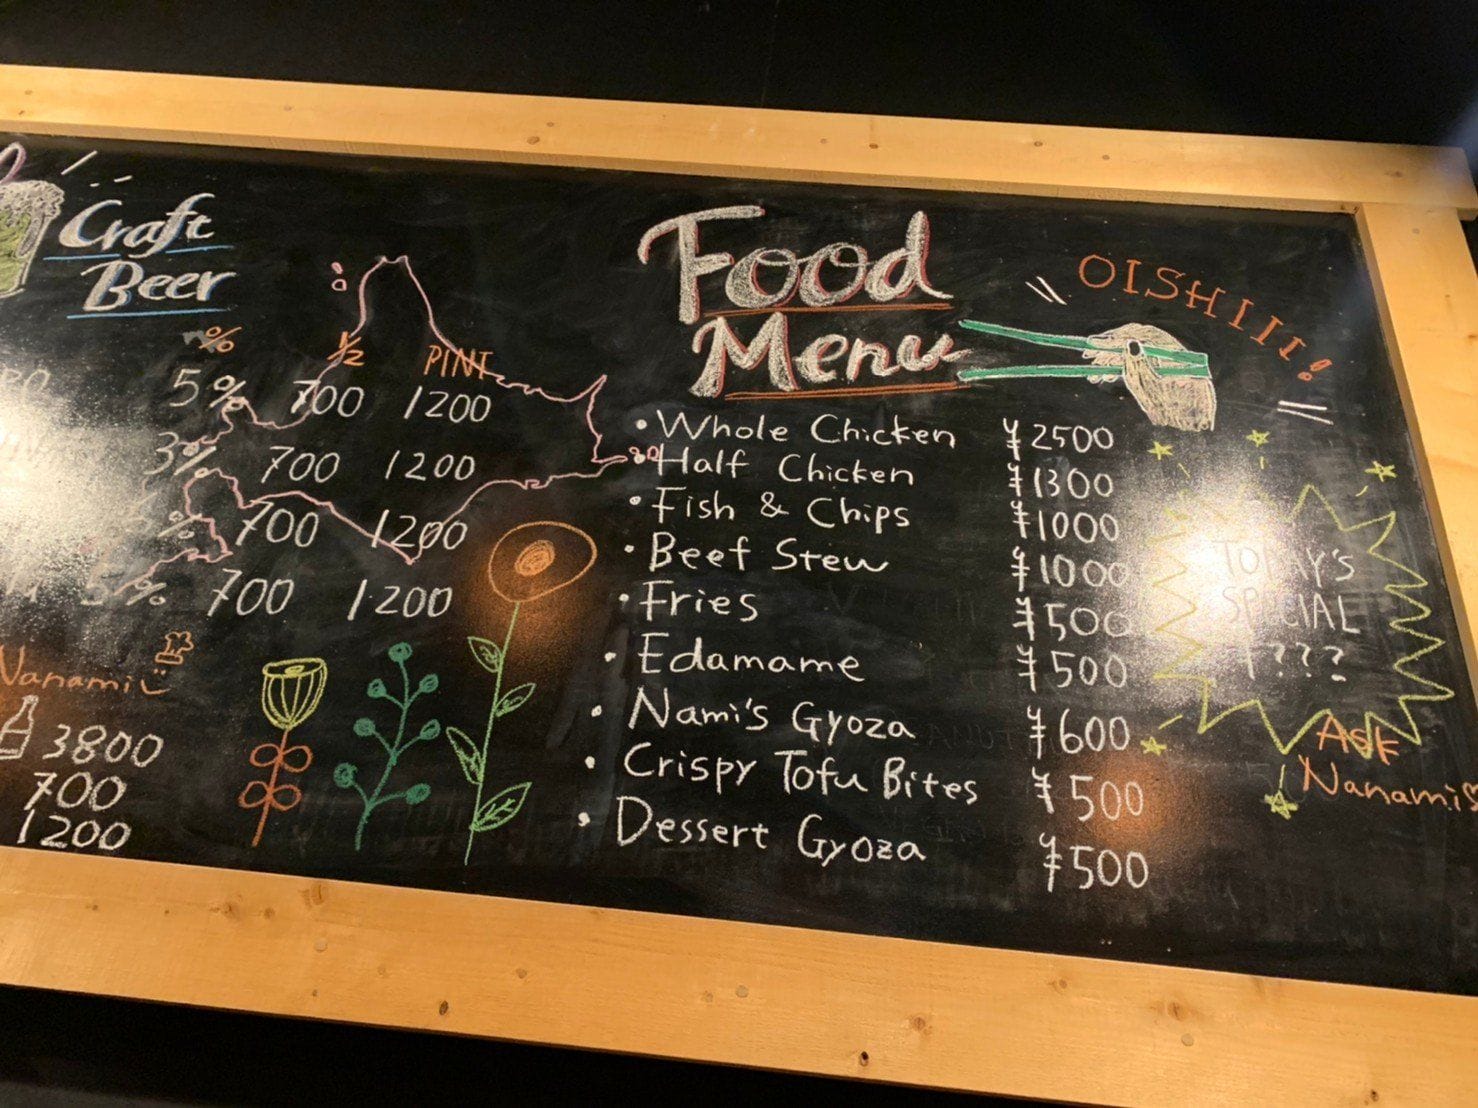 Craft
Beer
%
1/2
PINT
5%
700
1200
3%
700
1200
%
700
1200
5%
700
1200
Nanami
3800
700
1200
Food
Menu
OISHIII!
• Whole Chicken ¥2500
• Half Chicken ¥1300
• Fish & Chips ¥1000
• Beef Stew ¥1000
• Fries ¥500
• Edamame ¥500
• Nami's Gyoza ¥600
• Crispy Tofu Bites ¥500
• Dessert Gyoza ¥500
TODAY'S
SPECIAL
???
Ask
Nanami♡